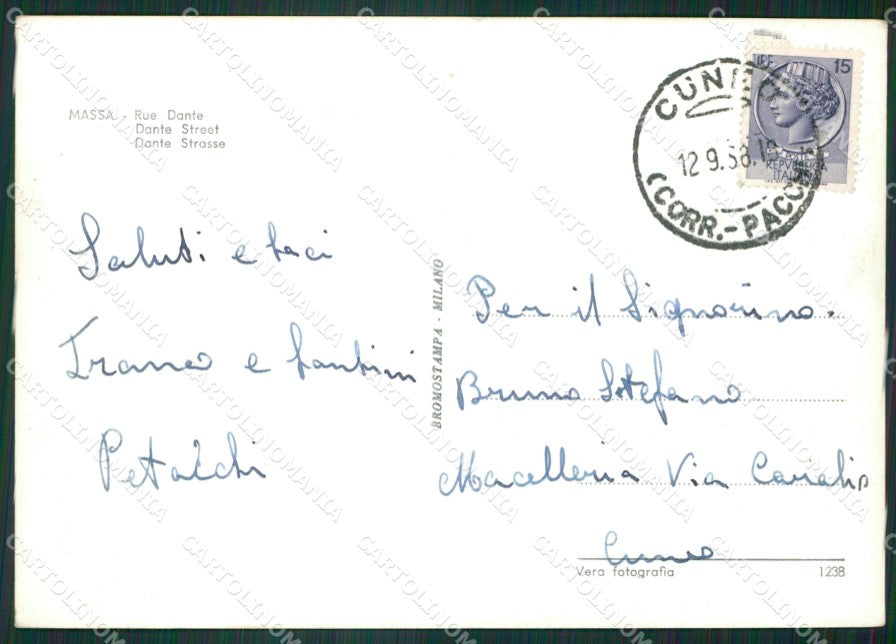 MASSA - Rue Dante
Dante Street
Dante Strasse
CUNEO
12.9.58.1
(CORR.-PACCHI)
LIRE 15
REPVBBLICA
ITALIANA
Saluti e baci
Franco e
Petacchi
BROMOSTAMPA - MILANO
Per il Signorino.
Bruno Stefano
Macelleria Via
Cuneo
Vera fotografia
1238
CARTOLINOMANIA